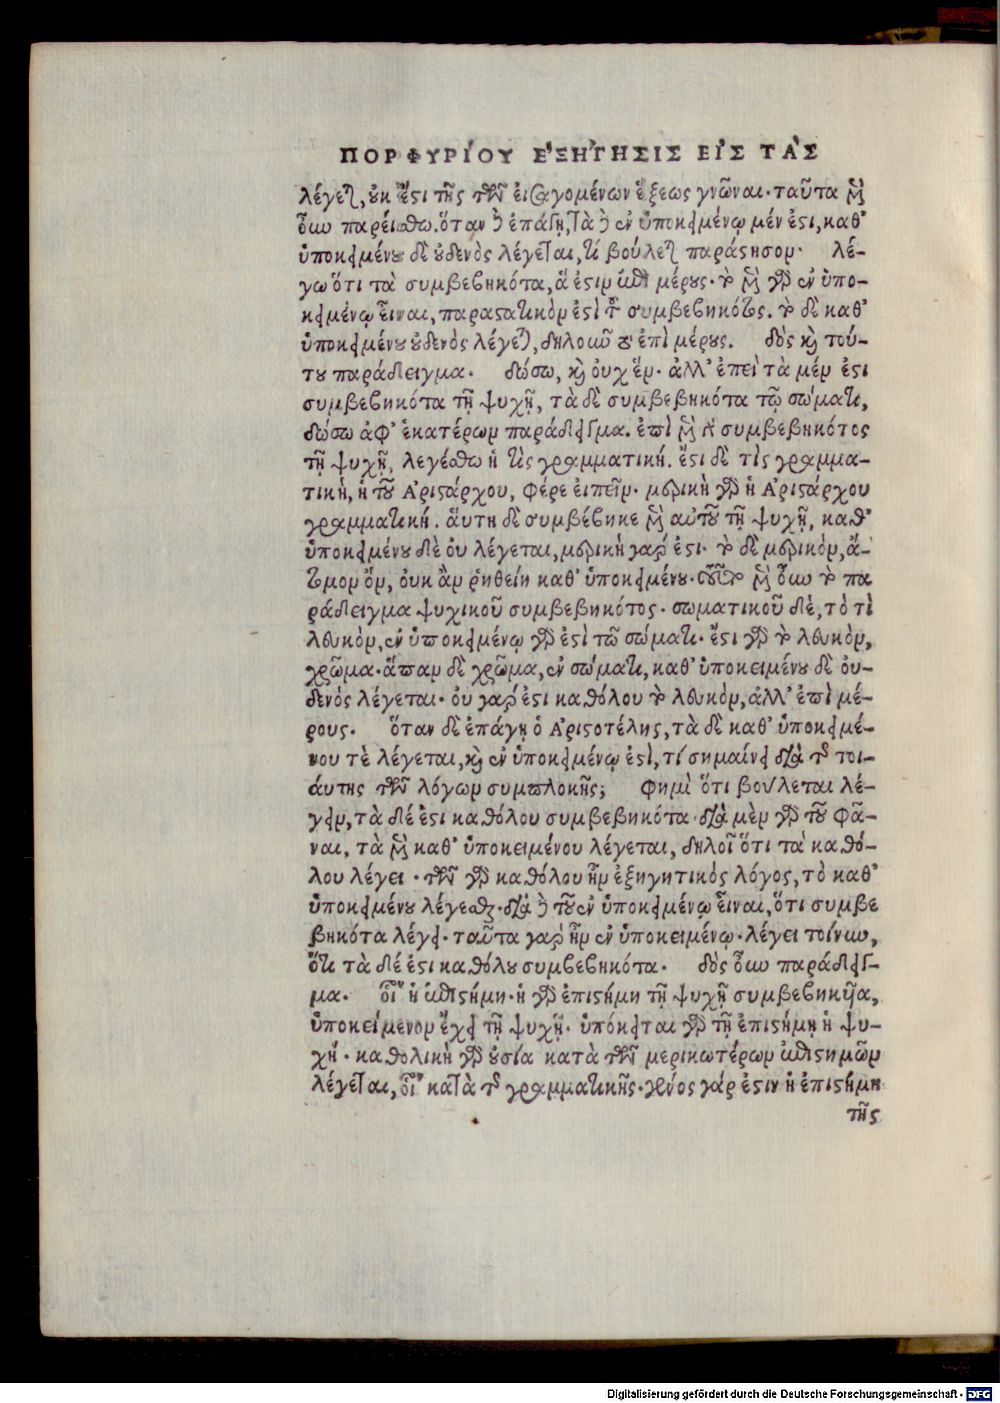 ΠΟΡΦΥΡΙΟΥ ΕΞΗΓΗΣΙΣ ΕΙΣ ΤΑΣ
λέγεται, οὐκ ἔστι τῆς τῶν εἰσαγομένων ἕξεως γνῶναι· ταῦτα μὲν
οὖν παρείσθω. ὅταν δὲ ἐπάγῃ, τὰ δὲ ἐν ὑποκειμένῳ μέν ἐστι, καθ᾽
ὑποκειμένου δὲ οὐδενὸς λέγεται, τί βούλεται παράστησον· λέ-
γω ὅτι τὰ συμβεβηκότα, ἅ ἐστιν ἐπὶ μέρους· τὸ μὲν γὰρ ἐν ὑπο-
κειμένῳ εἶναι, παραστατικὸν ἐστὶ τοῦ συμβεβηκότος. τὸ δὲ καθ᾽
ὑποκειμένου οὐδενὸς λέγεται, δηλοῦν τοῦ ἐπὶ μέρους. δὸς καὶ τού-
του παράδειγμα. δώσω, καὶ οὐχ ἕν· ἀλλ᾽ ἐπεὶ τὰ μέν ἐστι
συμβεβηκότα τῇ ψυχῇ, τὰ δὲ συμβεβηκότα τῷ σώματι,
δώσω ἀφ᾽ ἑκατέρων παράδειγμα. ἐπὶ μὲν τοῦ συμβεβηκότος
τῇ ψυχῇ, λεγέσθω ἡ τὶς γραμματική. ἔστι δὲ τὶς γραμμα-
τικὴ, ἡ τοῦ Ἀριστάρχου, φέρε εἰπεῖν· μερικὴ γὰρ ἡ Ἀριστάρχου
γραμματική. αὕτη δὲ συμβέβηκε μὲν αὐτοῦ τῇ ψυχῇ, καθ᾽
ὑποκειμένου δὲ οὐ λέγεται, μερικὴ γάρ ἐστι· τὸ δὲ μερικὸν, ἄ-
τομον ὂν, οὐκ ἂν ῥηθείη καθ᾽ ὑποκειμένου· τοῦτο μὲν οὖν τὸ πα
ράδειγμα ψυχικοῦ συμβεβηκότος· σωματικοῦ δὲ, τὸ τὶ
λευκὸν, ἐν ὑποκειμένῳ γὰρ ἐστὶ τῷ σώματι· ἔστι γὰρ τὸ λευκὸν,
χρῶμα· ἅπαν δὲ χρῶμα, ἐν σώματι, καθ᾽ ὑποκειμένου δὲ οὐ-
δενὸς λέγεται· οὐ γάρ ἐστι καθόλου τὸ λευκὸν, ἀλλ᾽ ἐπὶ μέ-
ρους. ὅταν δὲ ἐπάγῃ ὁ Ἀριστοτέλης, τὰ δὲ καθ᾽ ὑποκειμέ-
νου τὲ λέγεται, καὶ ἐν ὑποκειμένῳ ἐστὶ, τί σημαίνει διὰ τῆς τοι-
αύτης τῶν λόγων συμπλοκῆς; φημὶ ὅτι βούλεται λέ-
γειν, τὰ δέ ἐστι καθόλου συμβεβηκότα· διὰ μὲν γὰρ τοῦ φᾶ-
ναι, τὰ μὲν καθ᾽ ὑποκειμένου λέγεται, δηλοῖ ὅτι τὰ καθό-
λου λέγει· τῶν γὰρ καθόλου ἦν ἐξηγητικὸς λόγος, τὸ καθ᾽
ὑποκειμένου λέγεσθαι· διὰ δὲ τοῦ ἐν ὑποκειμένῳ εἶναι, ὅτι συμβε
βηκότα λέγει· ταῦτα γὰρ ἦν ἐν ὑποκειμένῳ· λέγει τοίνυν,
ὅτι τὰ δέ ἐστι καθόλου συμβεβηκότα. δὸς οὖν παράδειγ-
μα. οἷον ἡ ἐπιστήμη· ἡ γὰρ ἐπιστήμη τῇ ψυχῇ συμβεβηκυῖα,
ὑποκείμενον ἔχει τῇ ψυχῇ· ὑπόκειται γὰρ τῇ ἐπιστήμῃ ἡ ψυ-
χή· καθολικὴ γὰρ οὐσία κατὰ τῶν μερικωτέρων ἐπιστημῶν
λέγεται, οἷον κατὰ τῆς γραμματικῆς· γένος γάρ ἐστιν ἡ ἐπιστήμη
τῆς
Digitalisierung gefördert durch die Deutsche Forschungsgemeinschaft - DFG